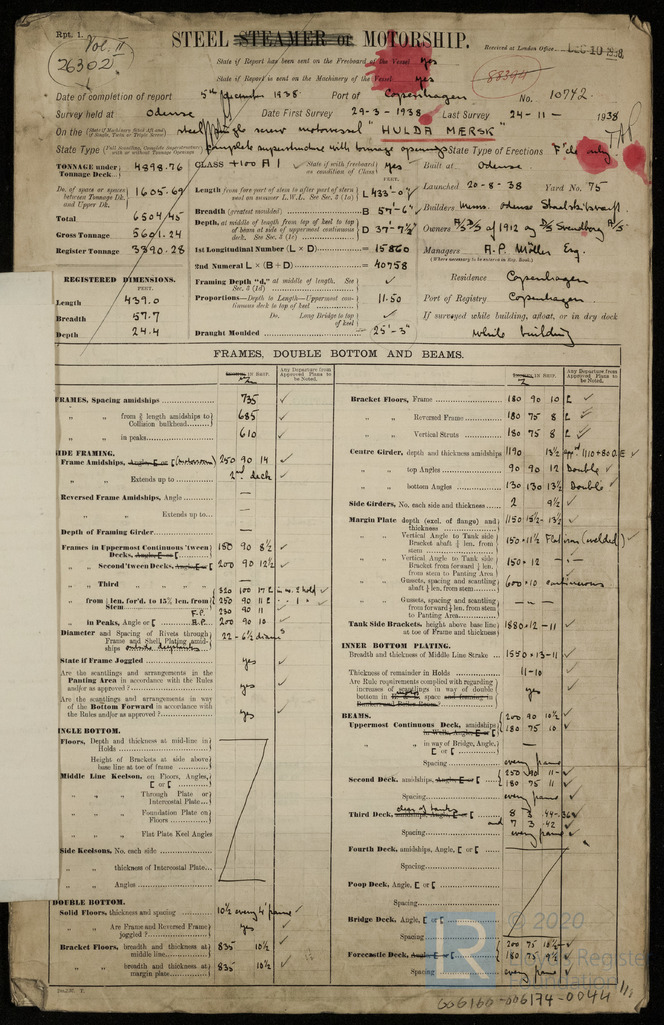 Rpt. 1.
Vol. II
26302
STEEL STEAMER or MOTORSHIP.
Received at London Office DEC 10 1938.
State if Report has been sent on the Freeboard of the Vessel yes
State if Report is sent on the Machinery of the Vessel yes
88344
Date of completion of report 5th December 1938 Port of Copenhagen No. 10742
Survey held at Odense Date First Survey 29-3-1938 Last Survey 24-11- 1938
On the steel single screw motorvessel "HULDA MÆRSK"
State Type complete superstructure with tonnage openings State Type of Erections F'cle only
TONNAGE under Tonnage Deck 4898.76
Do. of space or spaces between Tonnage Dk. and Upper Dk. 1605.69
Total 6504.45
Gross Tonnage 5601.24
Register Tonnage 3390.28
REGISTERED DIMENSIONS.
FEET.
Length 439.0
Breadth 57.7
Depth 24.4
CLASS +100 A 1 State if with freeboard as condition of Class yes
FEET.
Length from fore part of stem to after part of stern post on summer L.W.L. See Sec. 3 (1a) L 433'-0"
Breadth (greatest moulded) B 57'-6"
Depth, at middle of length from top of keel to top of beam at side of uppermost continuous deck. See Sec. 3 (1c) D 37'-7½
1st Longitudinal Number (L × D) = 15860
2nd Numeral L × (B + D) = 40758
Framing Depth "d," at middle of length. See Sec. 3 (1d) ✓
Proportions—Depth to Length—Uppermost continuous deck to top of keel 11.50
Do. Long Bridge to top of keel ✓
Draught Moulded 25'-3"
Built at Odense
Launched 20-8-38 Yard No. 75
Builders Mssrs. Odense Staalskibsværft
Owners A/S D/S of 1912 og D/S Svendborg A/S
Managers A.P. Möller Esq.
(Where necessary to be entered in Reg. Book)
Residence Copenhagen
Port of Registry Copenhagen
If surveyed while building, afloat, or in dry dock
while building
FRAMES, DOUBLE BOTTOM AND BEAMS.
IN SHIP.
Any Departure from Approved Plans to be Noted.
FRAMES, Spacing amidships 735 ✓
" " from ⅗ length amidships to Collision bulkhead 685 ✓
" " in peaks 610 ✓
SIDE FRAMING.
Frame Amidships, Angle, [ or [ 250 90 14 ✓
" " Extends up to 2nd deck ✓
Reversed Frame Amidships, Angle —
" " Extends up to —
Depth of Framing Girder —
Frames in Uppermost Continuous 'tween Decks, Angle, [ or [ 150 90 8½ ✓
" " Second 'tween Decks, Angle, [ or [ 200 90 12½ ✓
" " Third " " —
" " from ⅗ len. for'd. to 15% len. from Stem
250 90 11
F.P. 230 90 11
" in Peaks, Angle or [ A.P. 200 90 10 ✓
Diameter and Spacing of Rivets through Frame and Shell Plating amidships 22 - 6½ diams
State if Frame Joggled yes ✓
Are the scantlings and arrangements in the Panting Area in accordance with the Rules and/or as approved? yes ✓
Are the scantlings and arrangements in way of the Bottom Forward in accordance with the Rules and/or as approved? yes ✓
INGLE BOTTOM.
Floors, Depth and thickness at mid-line in Holds
Height of Brackets at side above base line at toe of frame
Middle Line Keelson, on Floors, Angles, [ or [
" " Through Plate or Intercostal Plate
" " Foundation Plate on Floors
" " Flat Plate Keel Angles
Side Keelsons, No. each side
" " thickness of Intercostal Plate
" " Angles
DOUBLE BOTTOM.
Solid Floors, thickness and spacing 10½ every 4' frame ✓
" " Are Frame and Reversed Frame joggled? yes ✓
Bracket Floors, breadth and thickness at middle line 835 10½ ✓
" " breadth and thickness at margin plate 835 10½ ✓
IN SHIP.
Any Departure from Approved Plans to be Noted.
Bracket Floors, Frame 180 90 10 ✓
" " Reversed Frame 180 75 8 ✓
" " Vertical Struts 180 75 8 ✓
Centre Girder, depth and thickness amidships 1190 13½
" " top Angles 90 90 12 Double ✓
" " bottom Angles 130 130 13½ Double ✓
Side Girders, No. each side and thickness 2 9½ ✓
Margin Plate depth (excl. of flange) and thickness 1150 15½-13½ ✓
" " Vertical Angle to Tank side Bracket abaft ⅕ len. from stem 150×11½ Flat iron (welded) ✓
" " Vertical Angle to Tank side Bracket from forward ⅕ len. from stem to Panting Area 150×12 —
" " Gussets, spacing and scantling abaft ⅕ len. from stem 600×10 continuous
" " Gussets, spacing and scantling from forward ⅕ len. from stem to Panting Area —
Tank Side Brackets, height above base line at toe of Frame and thickness 1880×12-11 ✓
INNER BOTTOM PLATING.
Breadth and thickness of Middle Line Strake 1550×13-11 ✓
Thickness of remainder in Holds 11-10 ✓
Are Rule requirements complied with regarding increases of scantlings in way of double bottom yes ✓
BEAMS.
Uppermost Continuous Deck, amidships 200 90 10½ ✓
180 75 10 ✓
" " in way of Bridge, Angle, [ or [
Spacing every frame ✓
Second Deck, amidships, Angle, [ or [ 250 90 11 ✓
180 75 11 ✓
Spacing every frame ✓
Third Deck, amidships, Angle, [ or [ 8 3 .44-.36
and 7 3 .42 ✓
Spacing every frame ✓
Fourth Deck, amidships, Angle, [ or [
Spacing
Poop Deck, Angle, [ or [
Spacing
Bridge Deck, Angle, [ or [
Spacing
Forecastle Deck, Angle, [ or [ 200 75
180 75 9½
Spacing every frame ✓
© 2020
Lloyd's Register
Foundation
006160-006174-0044